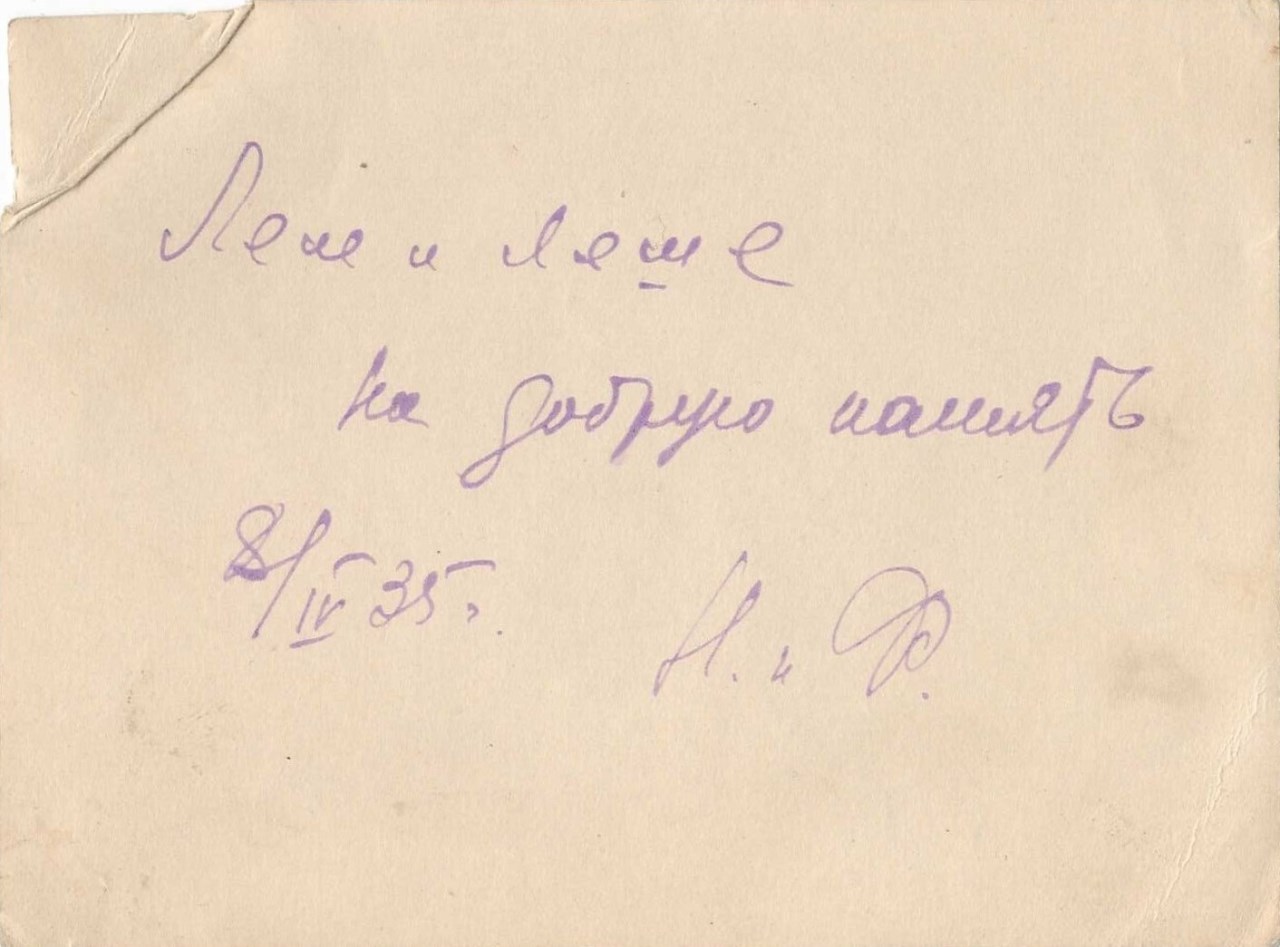 Леле и Ляше
на добрую память
8/IV 35 г.
Н. и Ф.